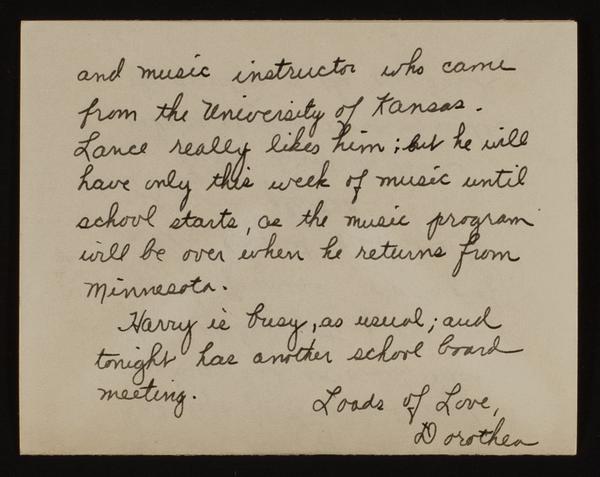 and music instructor who came
from the University of Kansas.
Lance really likes him; but he will
have only this week of music until
school starts, as the music program
will be over when he returns from
Minnesota.
Harry is busy, as usual; and
tonight has another school board
meeting.
Loads of Love,
Dorothea